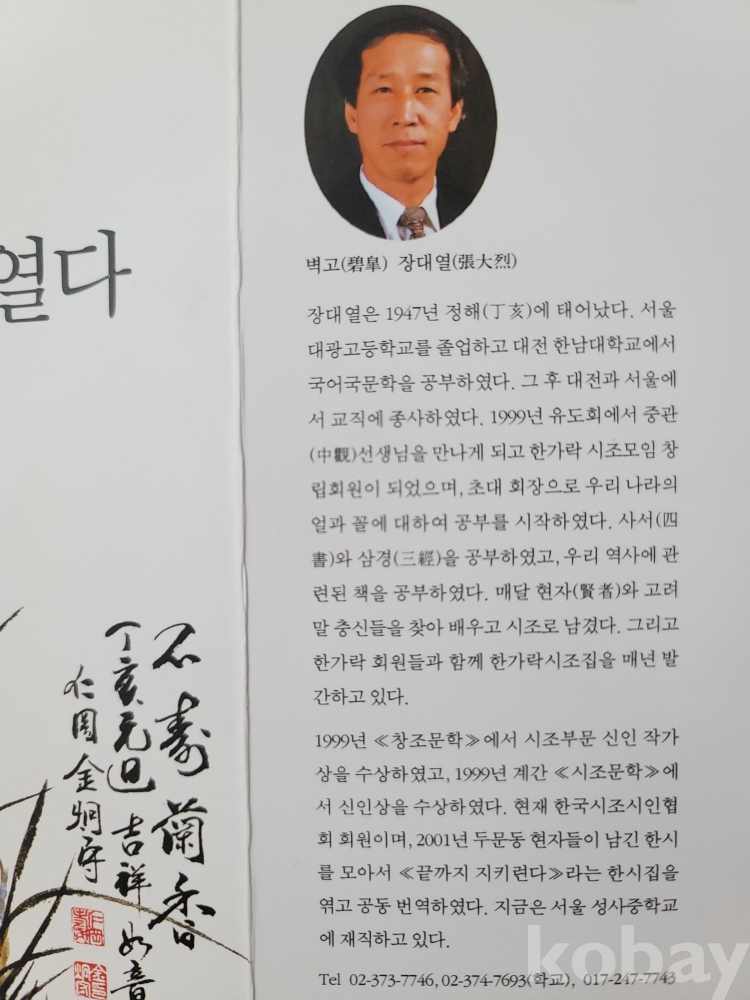 열다
벽고(碧皐) 장대열(張大烈)
장대열은 1947년 정해(丁亥)에 태어났다. 서울
대광고등학교를 졸업하고 대전 한남대학교에서
국어국문학을 공부하였다. 그 후 대전과 서울에
서 교직에 종사하였다. 1999년 유도회에서 중관
(中觀)선생님을 만나게 되고 한가락 시조모임 창
립회원이 되었으며, 초대 회장으로 우리 나라의
얼과 꼴에 대하여 공부를 시작하였다. 사서(四
書)와 삼경(三經)을 공부하였고, 우리 역사에 관
련된 책을 공부하였다. 매달 현자(賢者)와 고려
말 충신들을 찾아 배우고 시조로 남겼다. 그리고
한가락 회원들과 함께 한가락시조집을 매년 발
간하고 있다.
1999년 ≪창조문학≫에서 시조부문 신인 작가
상을 수상하였고, 1999년 계간 ≪시조문학≫에
서 신인상을 수상하였다. 현재 한국시조시인협
회 회원이며, 2001년 두문동 현자들이 남긴 한시
를 모아서 ≪끝까지 지키련다≫라는 한시집을
엮고 공동 번역하였다. 지금은 서울 성사중학교
에 재직하고 있다.
Tel 02-373-7746, 02-374-7693(학교), 017-247-7743
石壽蘭香
丁亥元旦 吉祥如意
仁園 金炯
kobay